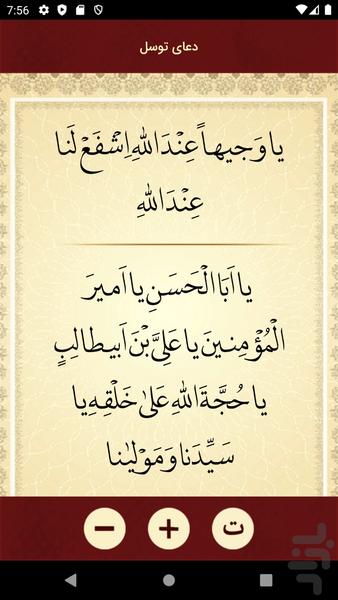 7:56
دعای توسل
یا وَجیهاً عِنْدَاللهِ اِشْفَعْ لَنا
عِنْدَاللهِ
یا اَبَا الْحَسَنِ یا اَمیرَ
الْمُؤْمِنینَ یا عَلِیَّ بْنَ اَبیطالِبٍ
یا حُجَّةَ اللهِ عَلیٰ خَلْقِهِ یا
سَیِّدَنا وَ مَوْلیٰنا
− + ت
بازار